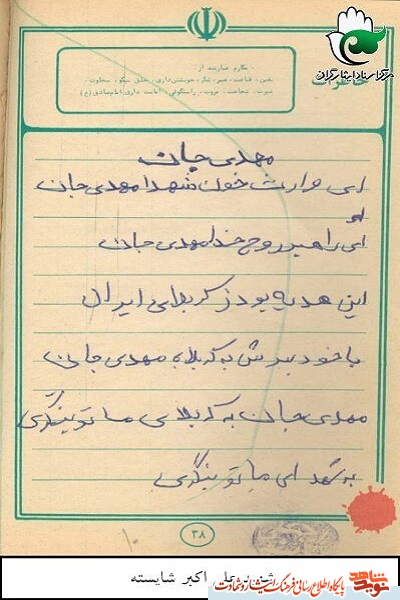 مرکز اسناد ایثارگران
خاطرات
مکارم عبارتند از:
یقین، قناعت، صبر، شکر، خویشتن‌داری، خلق نیکو، سخاوت،
غیرت، شجاعت، مروت، راستگوئی، امانت داری. امام صادق (ع)
مهدی جان
ای وارث خون شهدا مهدی جان
ای راهبر روح خدا مهدی جان
این هدیه بود ز کربلای ایران
با خود ببرش به کربلا مهدی جان
مهدی جان به کربلای ما تو بنگری
به ای ما تو بنگری
۳۸
۱۰
علی اکبر شایسته
نوید شاهد
پایگاه اطلاع رسانی فرهنگ ایثار و شهادت